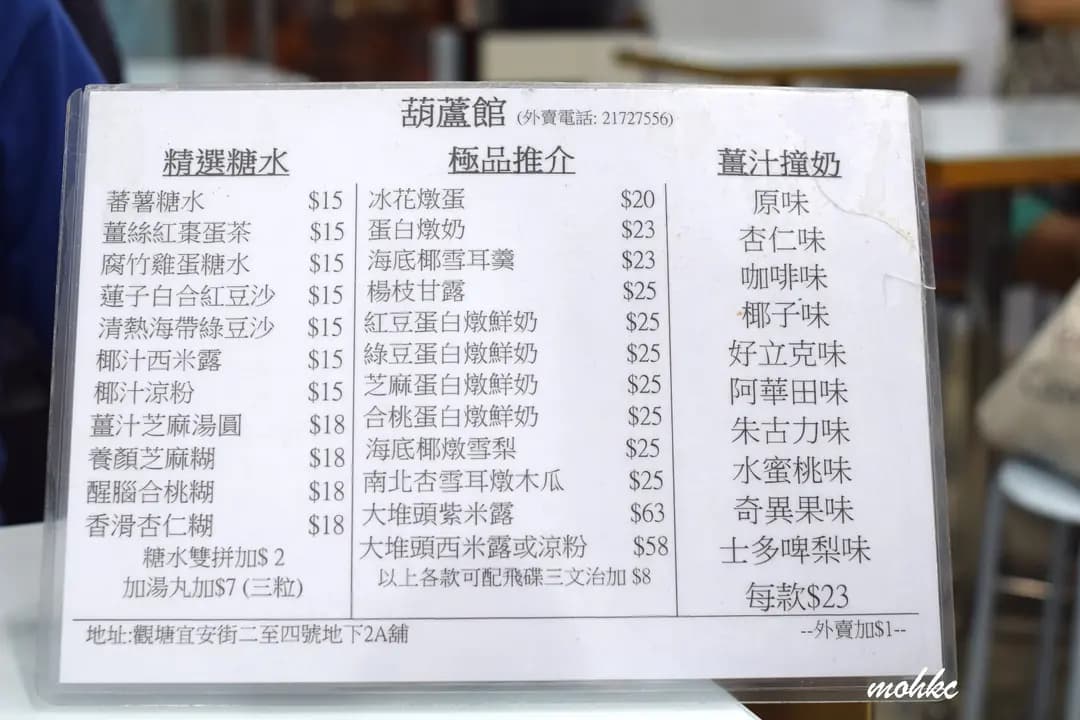 葫蘆館 (外賣電話: 21727556)
精選糖水
蕃薯糖水 $15
薑絲紅棗蛋茶 $15
腐竹雞蛋糖水 $15
蓮子白合紅豆沙 $15
清熱海帶綠豆沙 $15
椰汁西米露 $15
椰汁涼粉 $15
薑汁芝麻湯圓 $18
養顏芝麻糊 $18
醒腦合桃糊 $18
香滑杏仁糊 $18
糖水雙拼加$ 2
加湯丸加$7 (三粒)
極品推介
冰花燉蛋 $20
蛋白燉奶 $23
海底椰雪耳羹 $23
楊枝甘露 $25
紅豆蛋白燉鮮奶 $25
綠豆蛋白燉鮮奶 $25
芝麻蛋白燉鮮奶 $25
合桃蛋白燉鮮奶 $25
海底椰燉雪梨 $25
南北杏雪耳燉木瓜 $25
大堆頭紫米露 $63
大堆頭西米露或涼粉 $58
以上各款可配飛碟三文治加 $8
薑汁撞奶
原味
杏仁味
咖啡味
椰子味
好立克味
阿華田味
朱古力味
水蜜桃味
奇異果味
士多啤梨味
每款$23
地址:觀塘宜安街二至四號地下2A舖
--外賣加$1--
mohkc